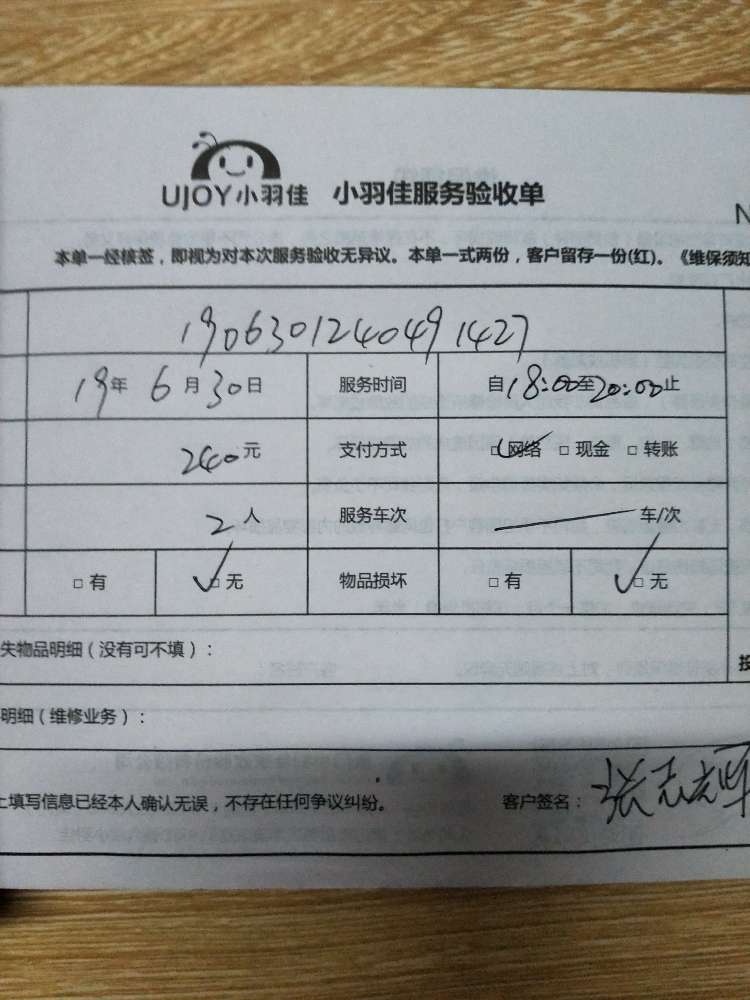 UJOY小羽佳 小羽佳服务验收单
N
本单一经核签，即视为对本次服务验收无异议。本单一式两份，客户留存一份(红)。《维保须知
190630124049 1427
19年 6月30日 服务时间 自18:00至20:00止
240元 支付方式 □网络 □现金 □转账
2人 服务车次 车/次
□有 □无 物品损坏 □有 □无
失物品明细（没有可不填）：
明细（维修业务）：
上填写信息已经本人确认无误，不存在任何争议纠纷。 客户签名：张志辉